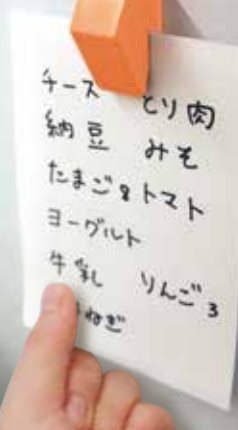 チーズ とり肉
納豆 みそ
たまご8 トマト
ヨーグルト
牛乳 りんご3
ねぎ